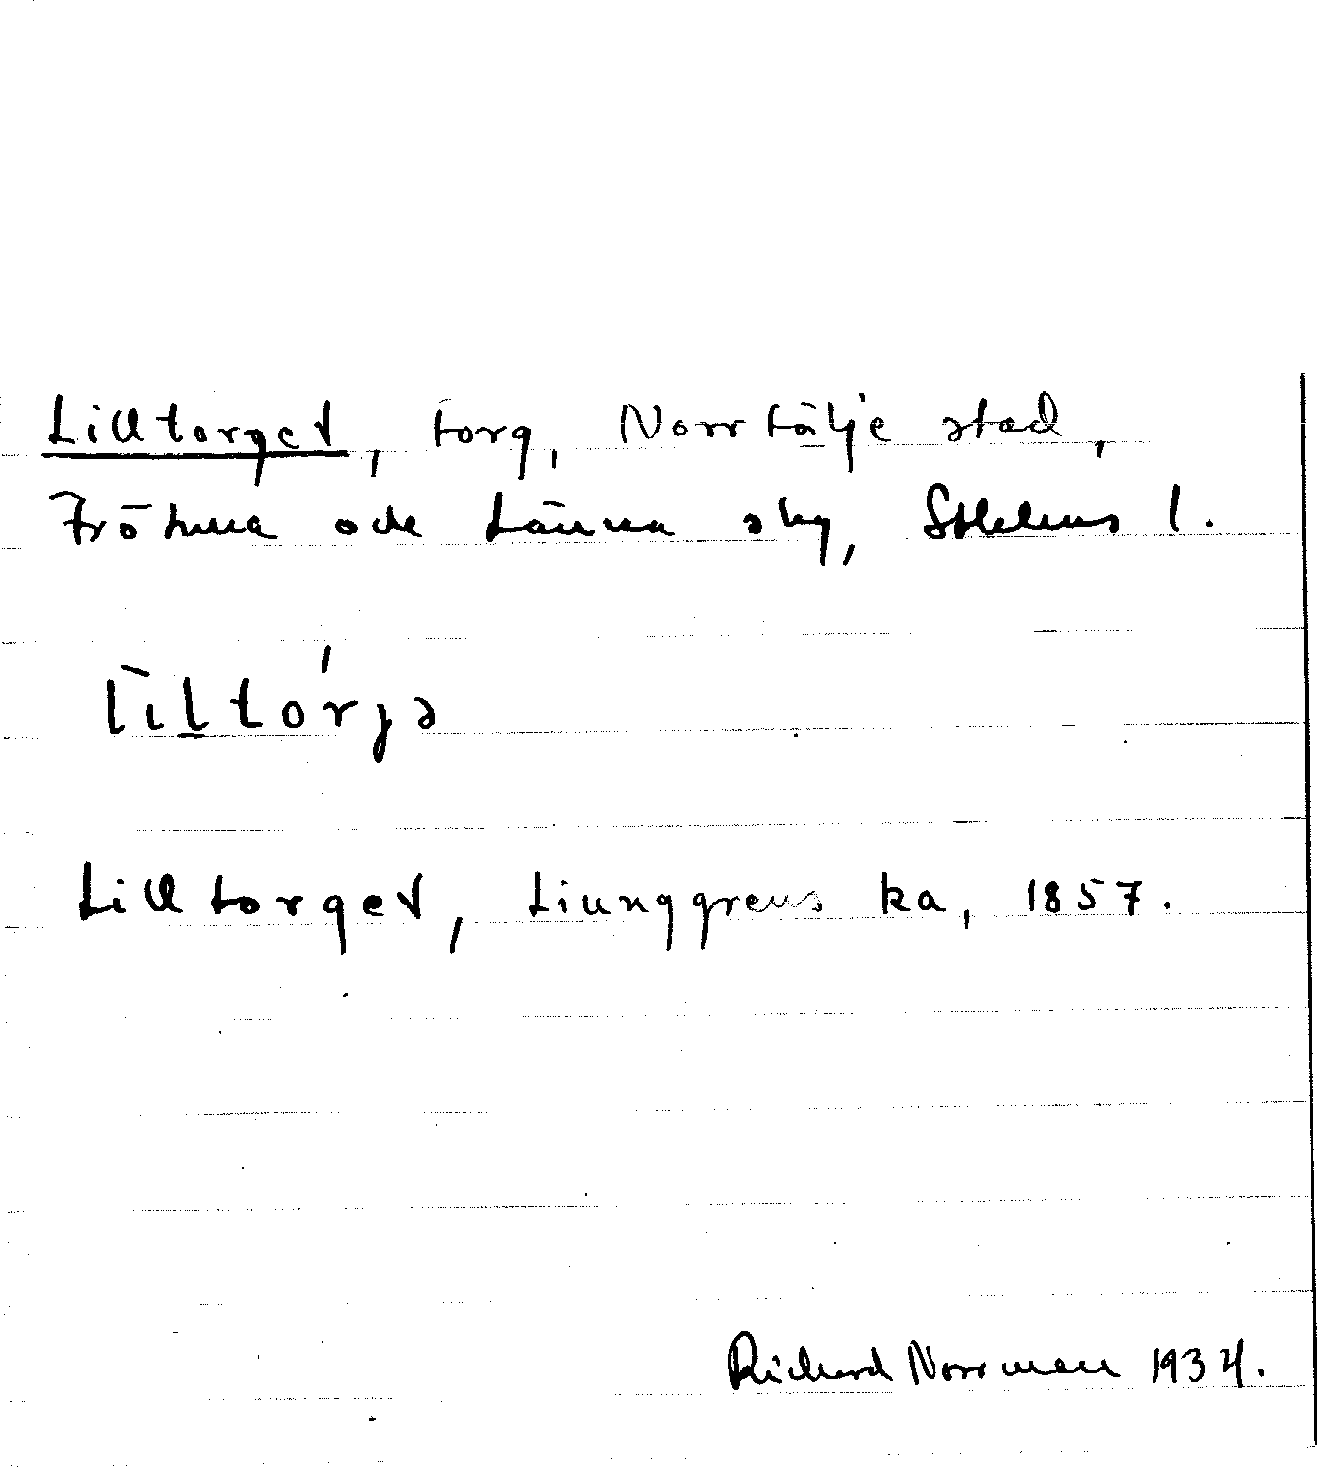 Lilltorget, torg, Norrtälje stad,
Frötuna och Länna skg, Sthlms l.
l̀iltór̡ə
Lilltorget, Liunggrens ka, 1857.
Richard Norrman 1934.